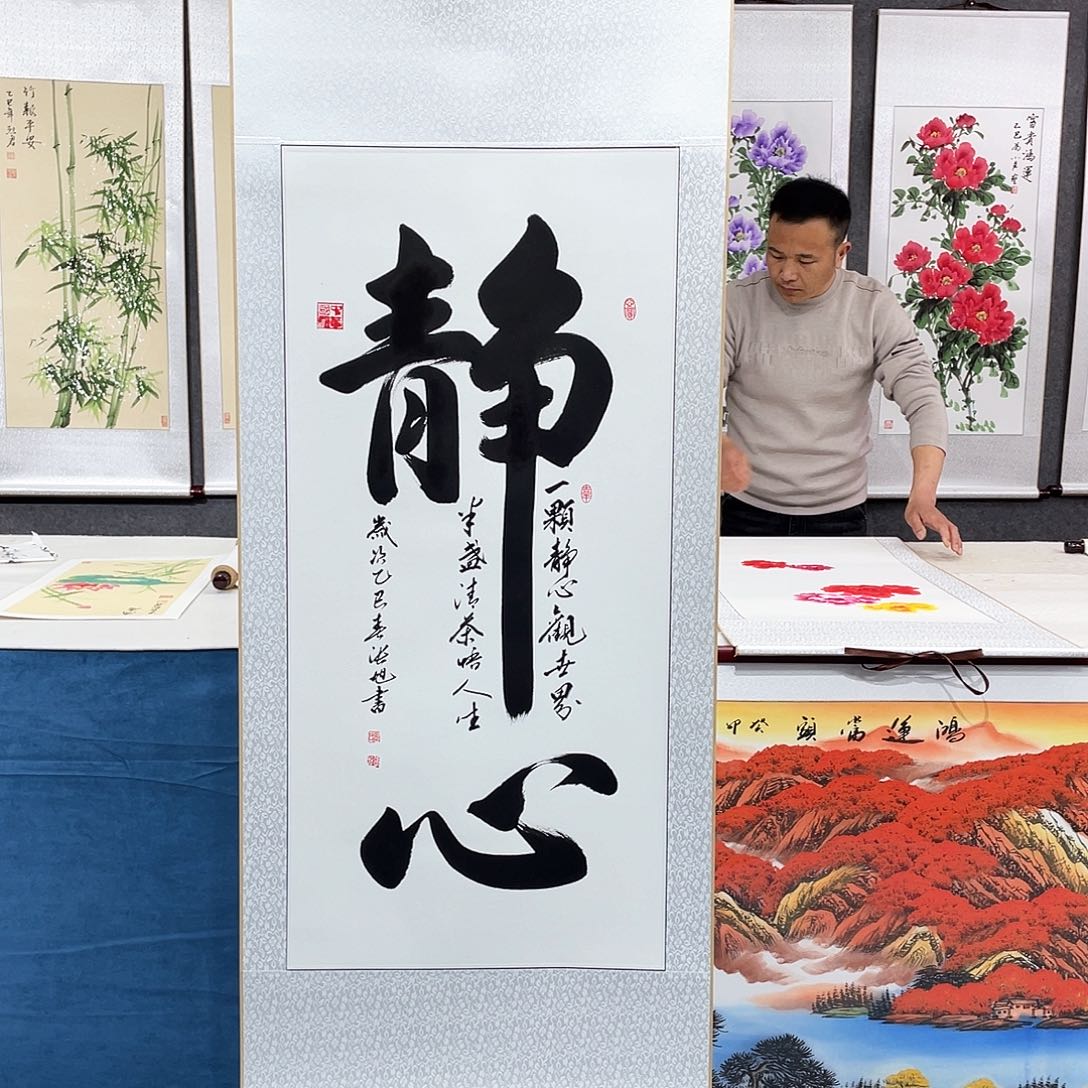 静心
一顆静心觀世界
半盏清茶悟人生
歲次乙巳春
書
竹報平安
乙巳年
富貴鴻運
乙巳
鴻運當頭